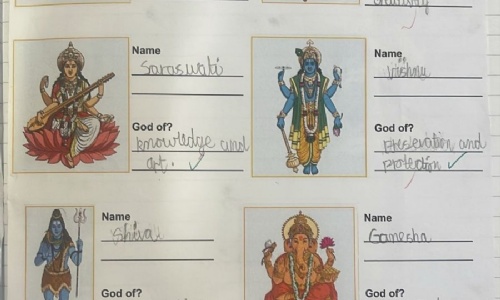 Name
Saraswati
God of?
knowledge and
art.
Name
Vishnu
God of?
Preservation and
protection
Name
Shiva
God of?
Name
Ganesha
God of?